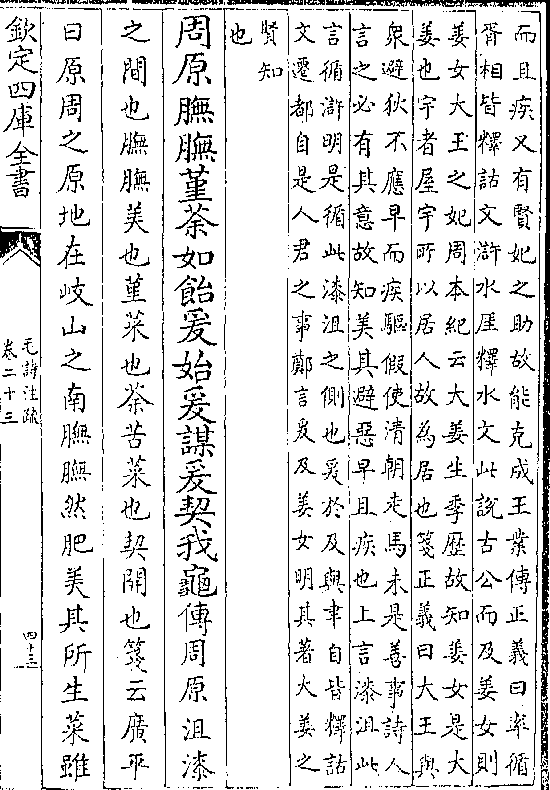 而且疾又有賢妃之助故能克成王業傳正義曰率循
胥相皆釋詁文滸水厓釋水文此說古公而及姜女則
姜女大王之妃周本紀云大姜生季歴故知姜女是大
姜也宇者屋宇所以居人故為居也箋正義曰大王與
衆避狄不應早而疾驅假使清朝走馬未是善事詩人
言之必有其意故知美其避惡早且疾也上言漆沮此
言循滸明是循此漆沮之側也爰於及與聿自皆釋詁
文遷都自是人君之事鄭言爰及姜女明其著大姜之
賢知
也
周原膴膴堇荼如飴爰始爰謀爰契我龜傳周原沮漆
之間也膴膴美也堇菜也荼苦菜也契開也箋云廣平
曰原周之原地在岐山之南膴膴然肥美其所生菜雖
欽定四庫全書
毛詩注疏
卷二十三
四十三